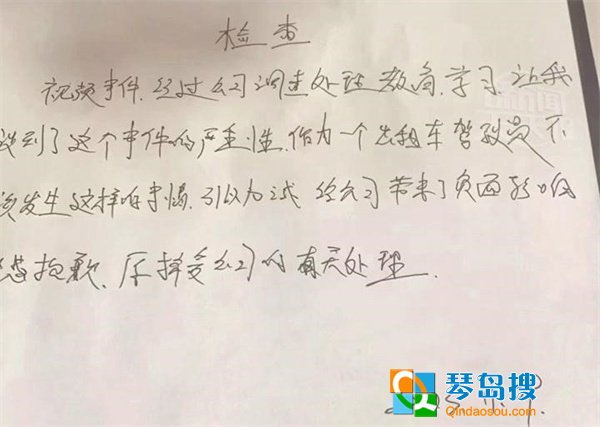 检查
视频事件,经过公司调查处理教育,学习,让我
识到了这个事件的严重性,作为一个出租车驾驶员不
该发生这样的事情,引以为诫 给公司带来了负面影响
抱歉,愿接受公司的有关处理.
琴岛搜
Qindaosou.com